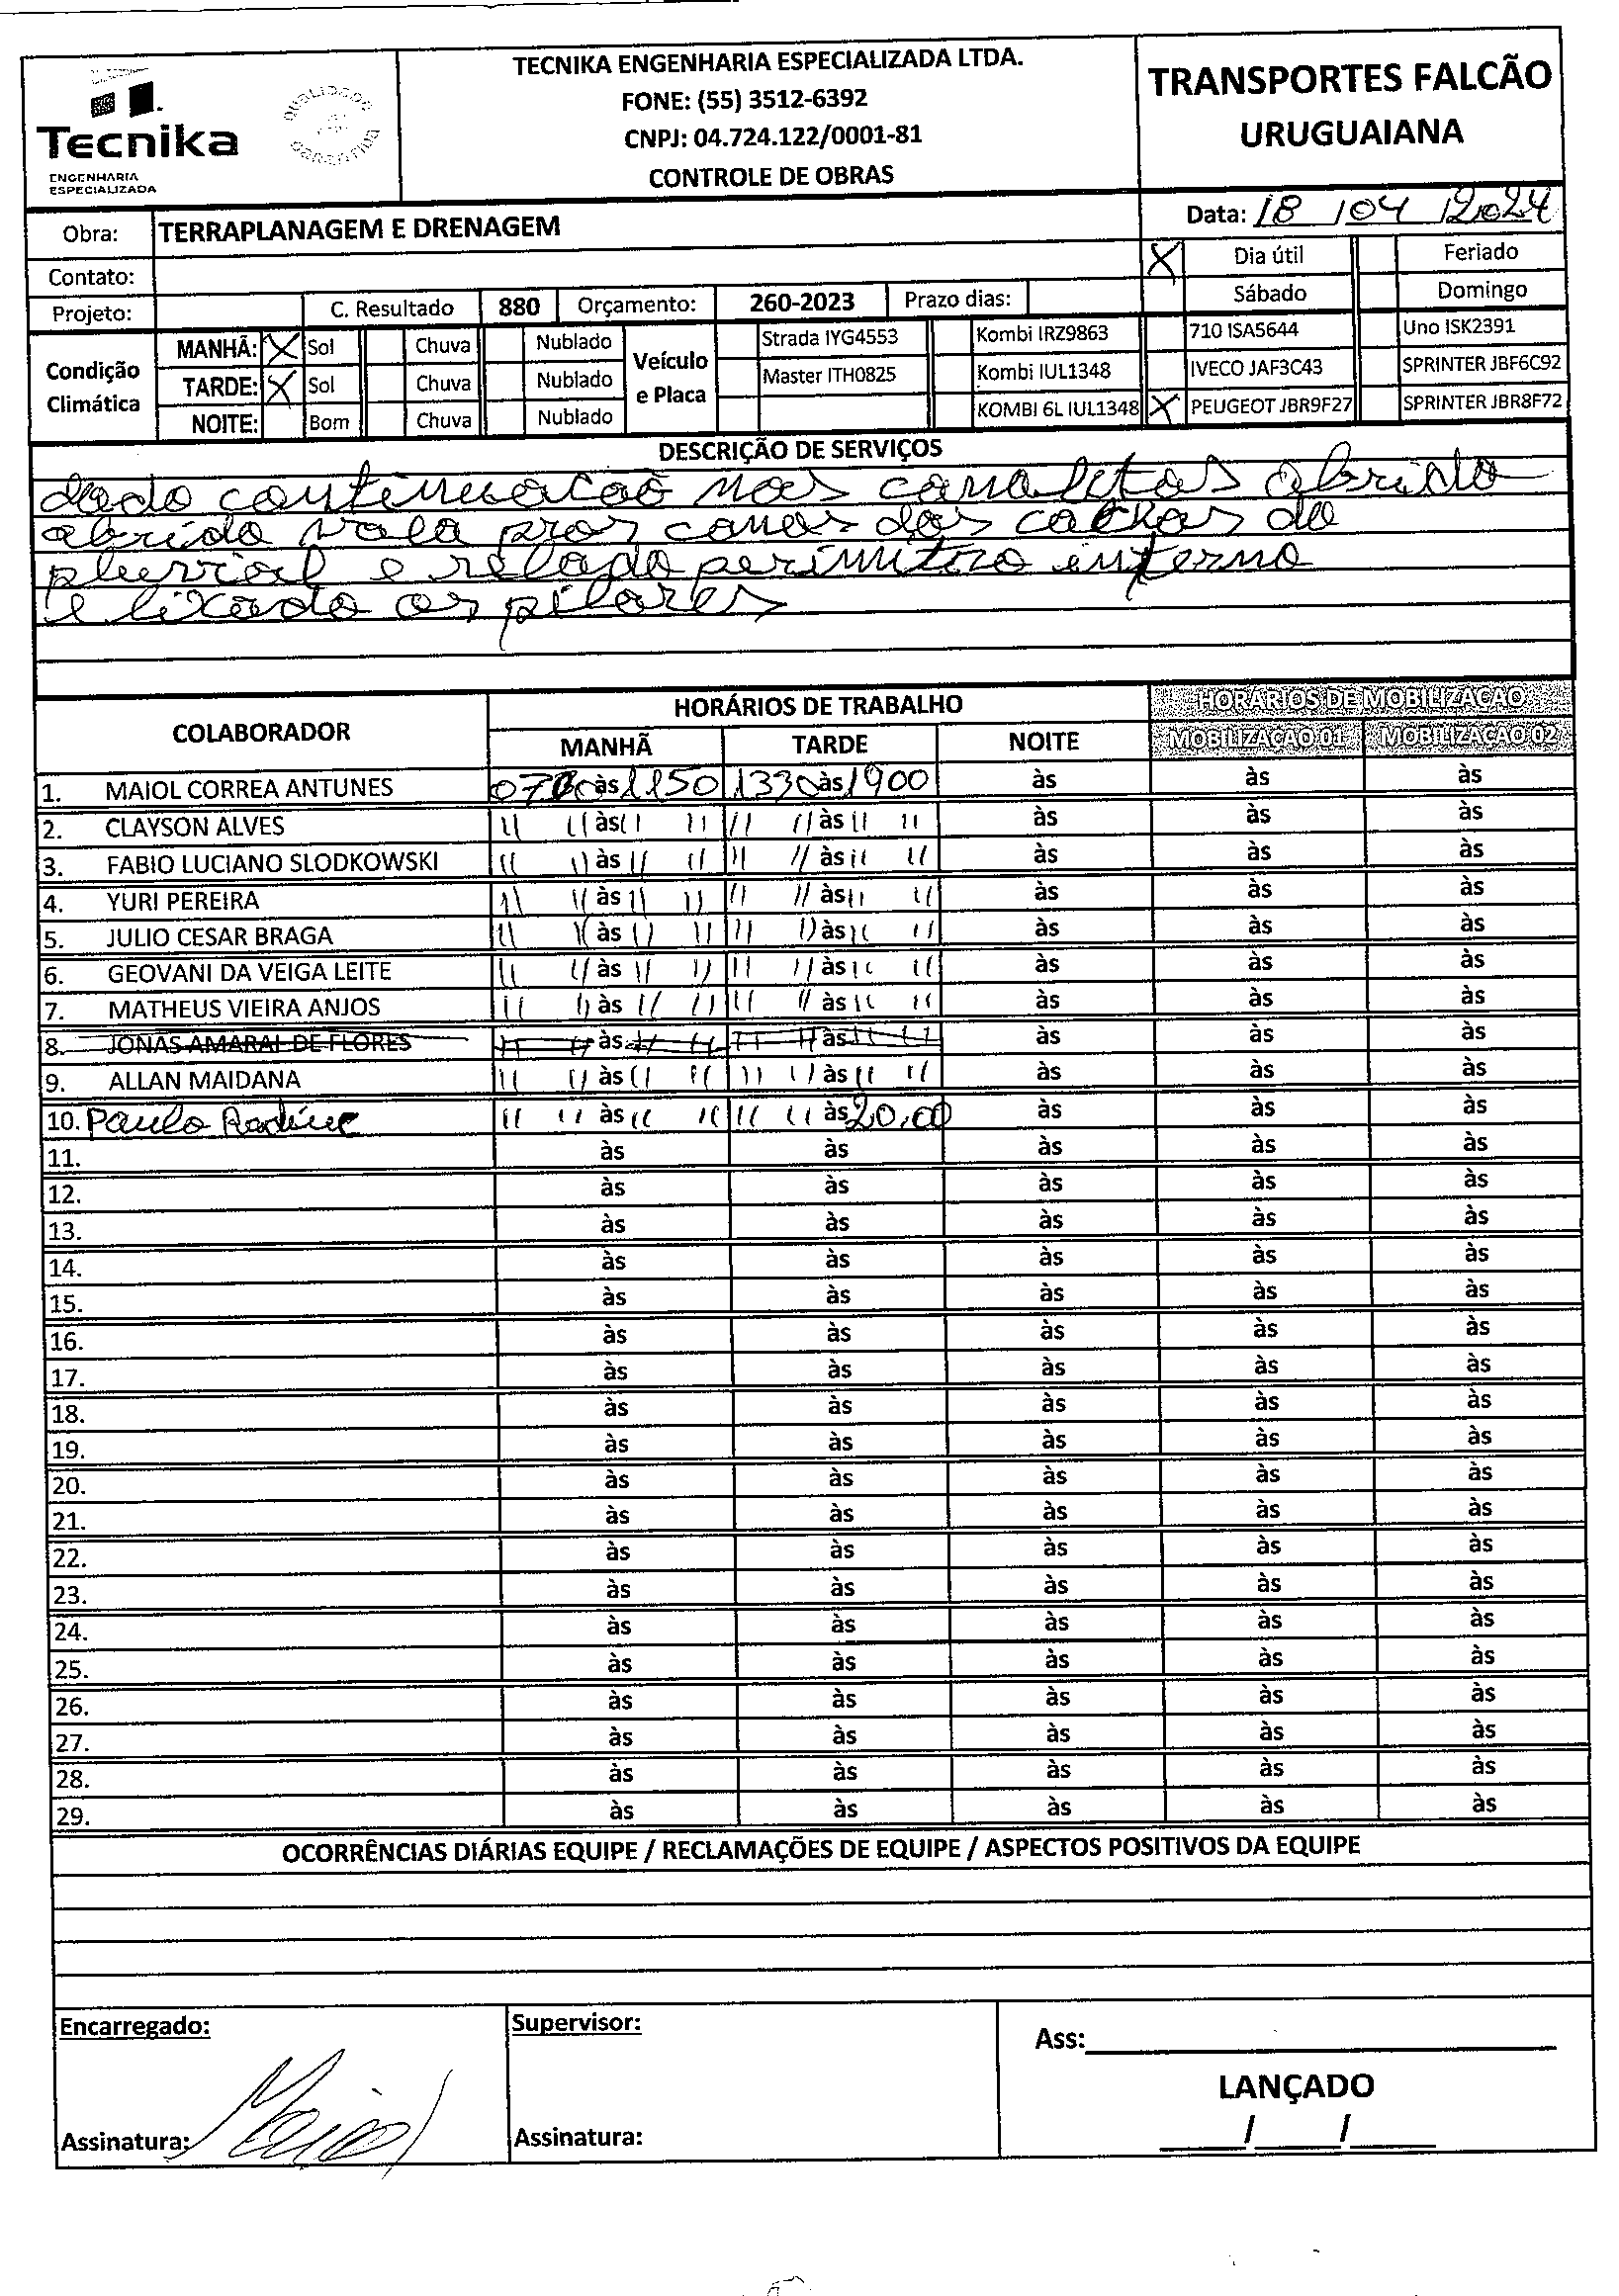 TECNIKA ENGENHARIA ESPECIALIZADA LTDA.
FONE: (55) 3512-6392
CNPJ: 04.724.122/0001-81
CONTROLE DE OBRAS
Tecnika
ENGENHARIA
ESPECIALIZADA
TRANSPORTES FALCÃO
URUGUAIANA
Data: 18 / 04 / 2024
Obra: TERRAPLANAGEM E DRENAGEM
X Dia útil Feriado
Contato:
Sábado Domingo
Projeto: C. Resultado 880 Orçamento: 260-2023 Prazo dias:
Condição Climática
MANHÃ: X Sol Chuva Nublado
TARDE: X Sol Chuva Nublado
NOITE: Bom Chuva Nublado
Veículo e Placa
Strada IYG4553 Kombi IRZ9863 710 ISA5644 Uno ISK2391
Master ITH0825 Kombi IUL1348 IVECO JAF3C43 SPRINTER JBF6C92
KOMBI 6L IUL1348 X PEUGEOT JBR9F27 SPRINTER JBR8F72
DESCRIÇÃO DE SERVIÇOS
dado continuacaõ nas canaletas abrido
abrido vala pros canos dos caixas do
pluvial e relado perimitro interno
e lixado os pilares
COLABORADOR HORÁRIOS DE TRABALHO HORÁRIOS DE MOBILIZAÇÃO
MANHÃ TARDE NOITE MOBILIZAÇÃO 01 MOBILIZAÇÃO 02
1. MAIOL CORREA ANTUNES 0700 às 1150 1330 às 1900 às às às
2. CLAYSON ALVES " " às " " " " às " " às às às
3. FABIO LUCIANO SLODKOWSKI " " às " " " " às " " às às às
4. YURI PEREIRA " " às " " " " às " " às às às
5. JULIO CESAR BRAGA " " às " " " " às " " às às às
6. GEOVANI DA VEIGA LEITE " " às " " " " às " " às às às
7. MATHEUS VIEIRA ANJOS " " às " " " " às " " às às às
8. JONAS AMARAL DE FLORES " " às " " " " às " " às às às
9. ALLAN MAIDANA " " às " " " " às " " às às às
10. Paulo " " às " " " " às 20,00 às às às
11. às às às às às
12. às às às às às
13. às às às às às
14. às às às às às
15. às às às às às
16. às às às às às
17. às às às às às
18. às às às às às
19. às às às às às
20. às às às às às
21. às às às às às
22. às às às às às
23. às às às às às
24. às às às às às
25. às às às às às
26. às às às às às
27. às às às às às
28. às às às às às
29. às às às às às
OCORRÊNCIAS DIÁRIAS EQUIPE / RECLAMAÇÕES DE EQUIPE / ASPECTOS POSITIVOS DA EQUIPE
Encarregado: Supervisor:
Ass:
LANÇADO
Assinatura: Maiol Assinatura: / /